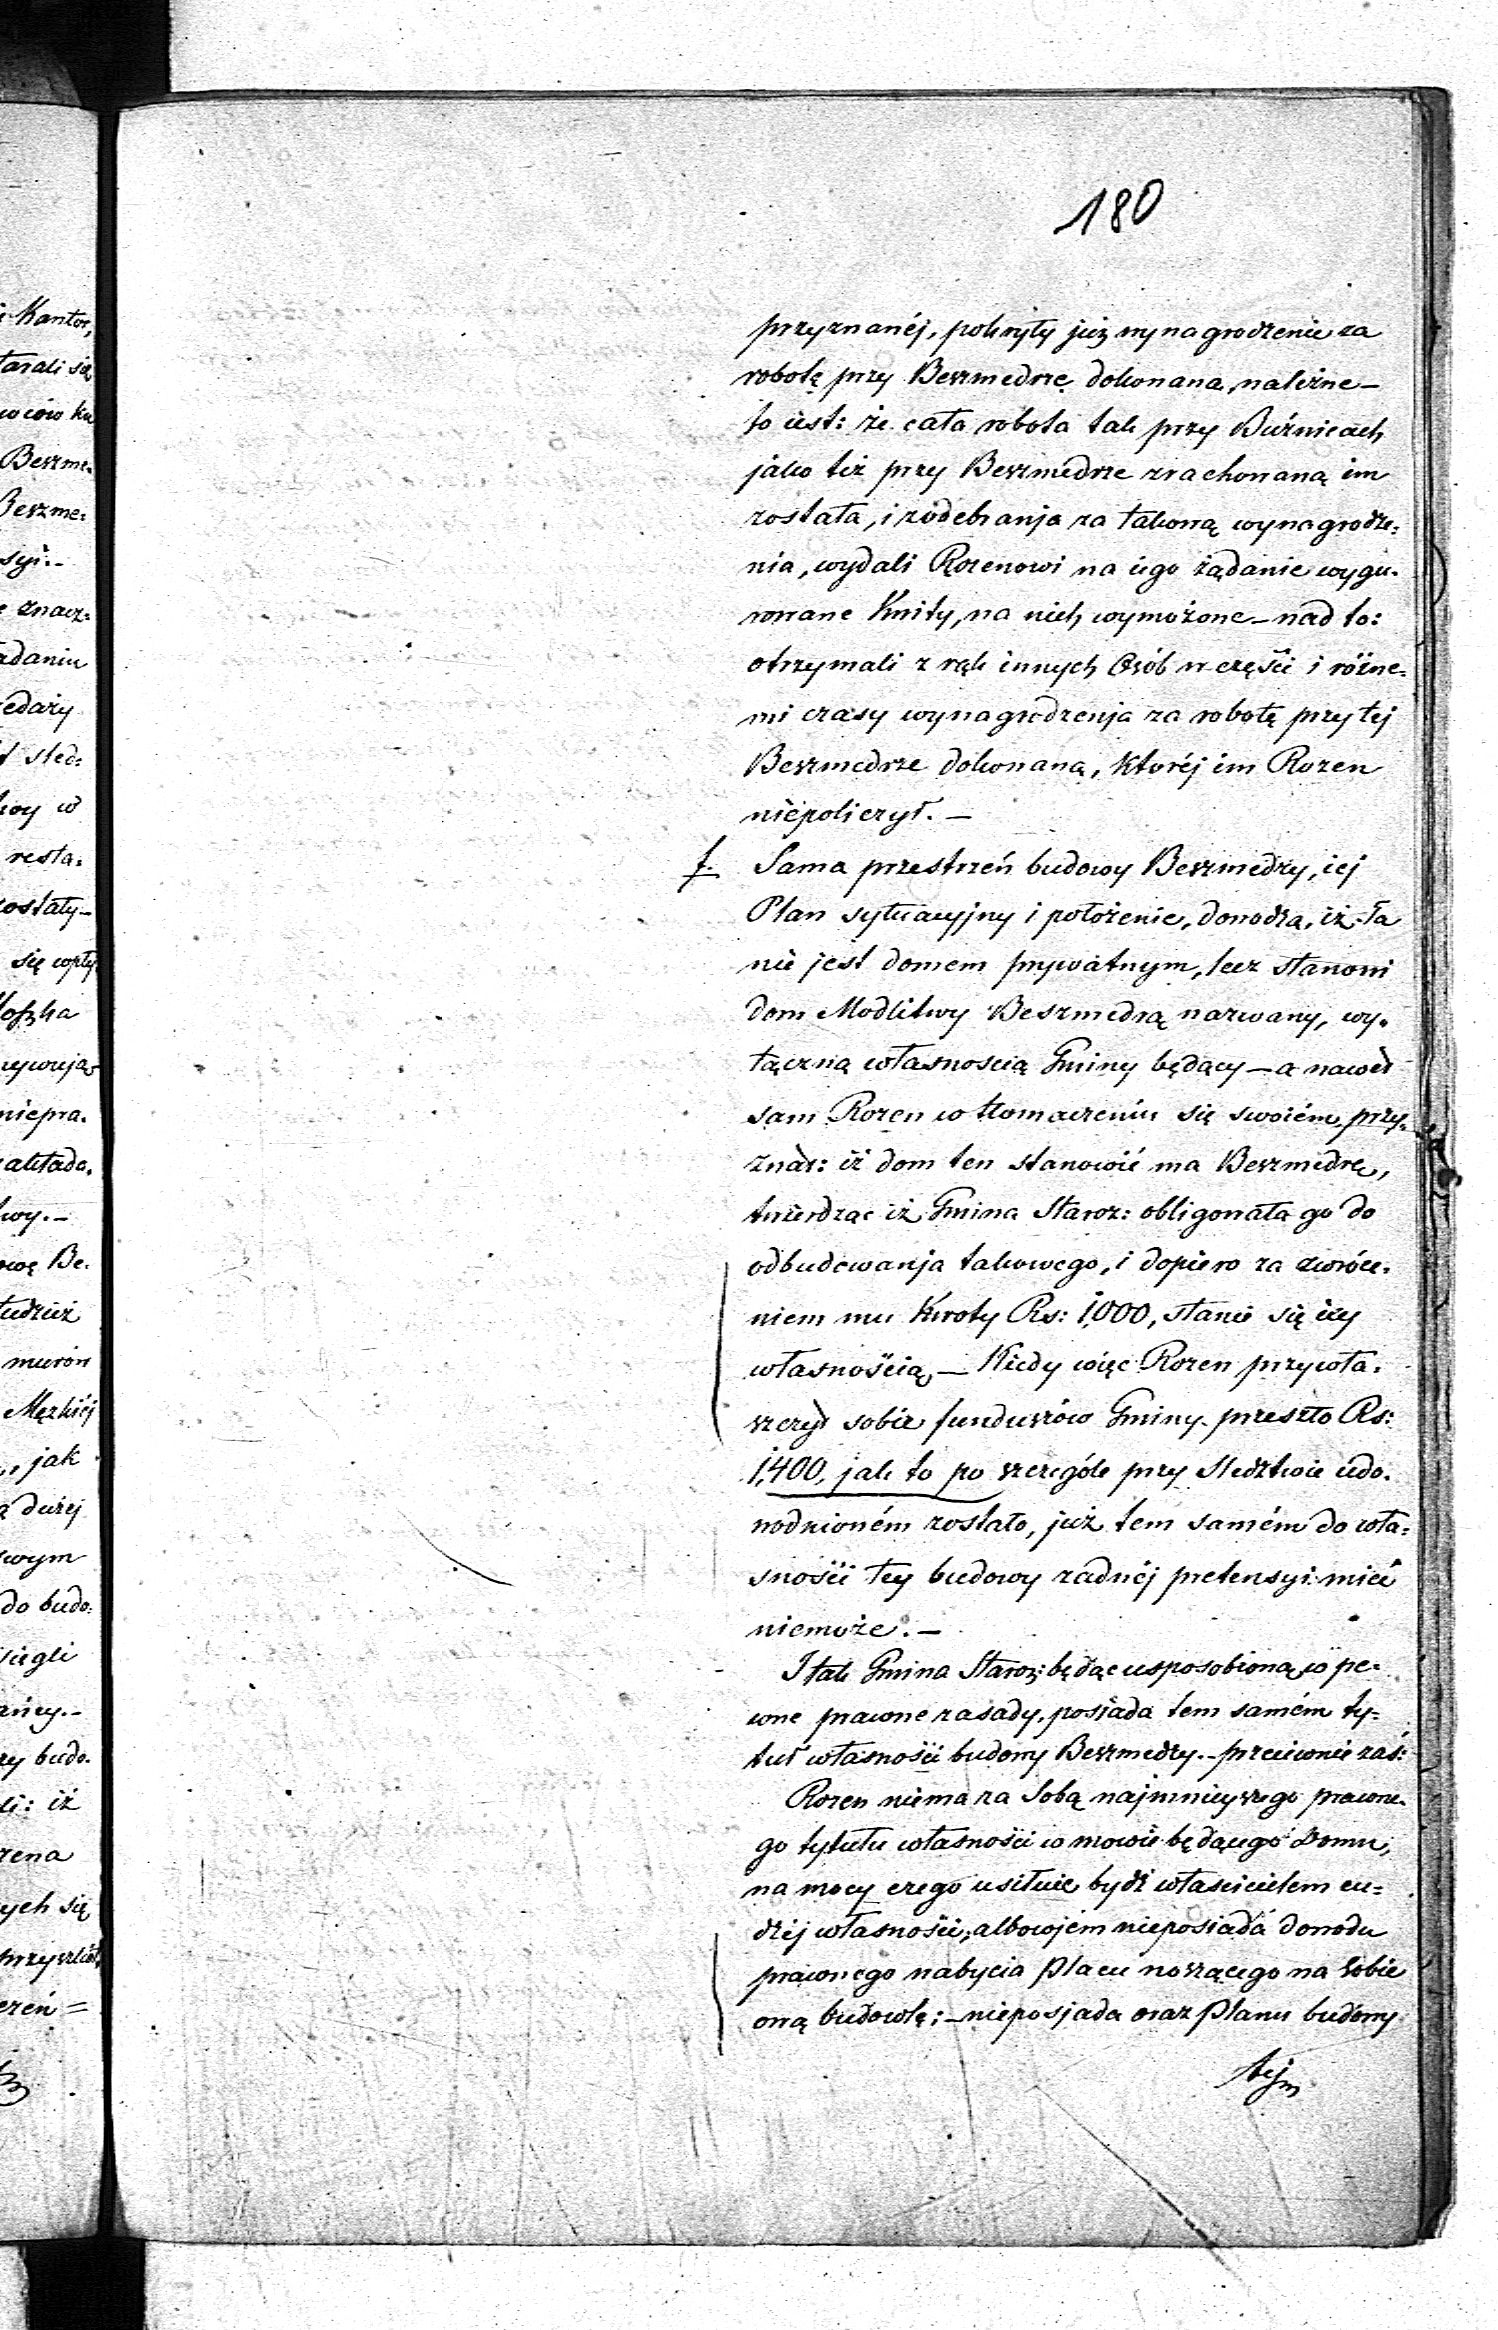 180
przyznanéj, pokryty już wynagrodzenie za
robotę przy Beszmedrze dokonaną należne —
to iest: że cała robota tak przy Buźnicach
jako też przy Beszmedrze zrachowaną im
została, i z odebrania za takową wynagrodze:
nia, wydali Rozenowi na iego żądanie wygu-
rowane Kwity, na nich wymożone — nad to:
otrzymali z rąk innych Osób w części i różne-
mi czasy wynagrodzenia za robotę przy tej
Beszmedrze dokonaną, któréj im Rozen
niepoliczył. —
f. Sama przestrzeń budowy Beszmedry, iej
Plan sytuacyjny i położenie, dowodzą, iż Ta
nie jest domem prywatnym, lecz stanowi
dom Modlitwy Beszmedrą nazwany, wy-
łączną własnoscią Gminy będący — a nawet
sam Rozen w tłomaczeniu się swoiém, przy-
znał: iż dom ten stanowić ma Beszmedrę,
twierdząc iż Gmina Staroz: obligowała go do
odbudowania takowego, i dopiero za zwróce-
niem mu Kwoty Rs: 1,000, stanie się iey
własnością — Kiedy więc Rozen przywła-
szczył sobie funduszów Gminy przeszło Rs:
1,400, jak to po szczególe przy Sledztwie udo-
wodnioném zostało, już tem samém do wła:
sności tey budowy żadnéj pretensyi mieć
niemoże. —
I tak Gmina Staroz: będąc usposobioną w pe-
wne prawne zasady, posiada tem samém ty:
tuł własności budowy Beszmedry. — przeciwnie zaś:
Rozen niema za Sobą najmnieyszego prawne-
go tytułu własności w mowie będącego Domu,
na mocy czego usiłuie bydź właścicielem cu:
dzéj własności, albowiem nieposiada dowodu
prawnego nabycia Placu noszącego na Sobie
ową budowlę; — nieposiada oraz Planu budowy
tej
i Kantor,
tarali się
Beszme-
Beszme:
syi. —
znacz:
adaniu
edaży
sled:
resta:
ostały —
się wpły
niepra.
wy. —
Be.
tudzież
murów
Męzkiéj
jak
dużej
swym
do budo:
budo.
iż
zena
ych się